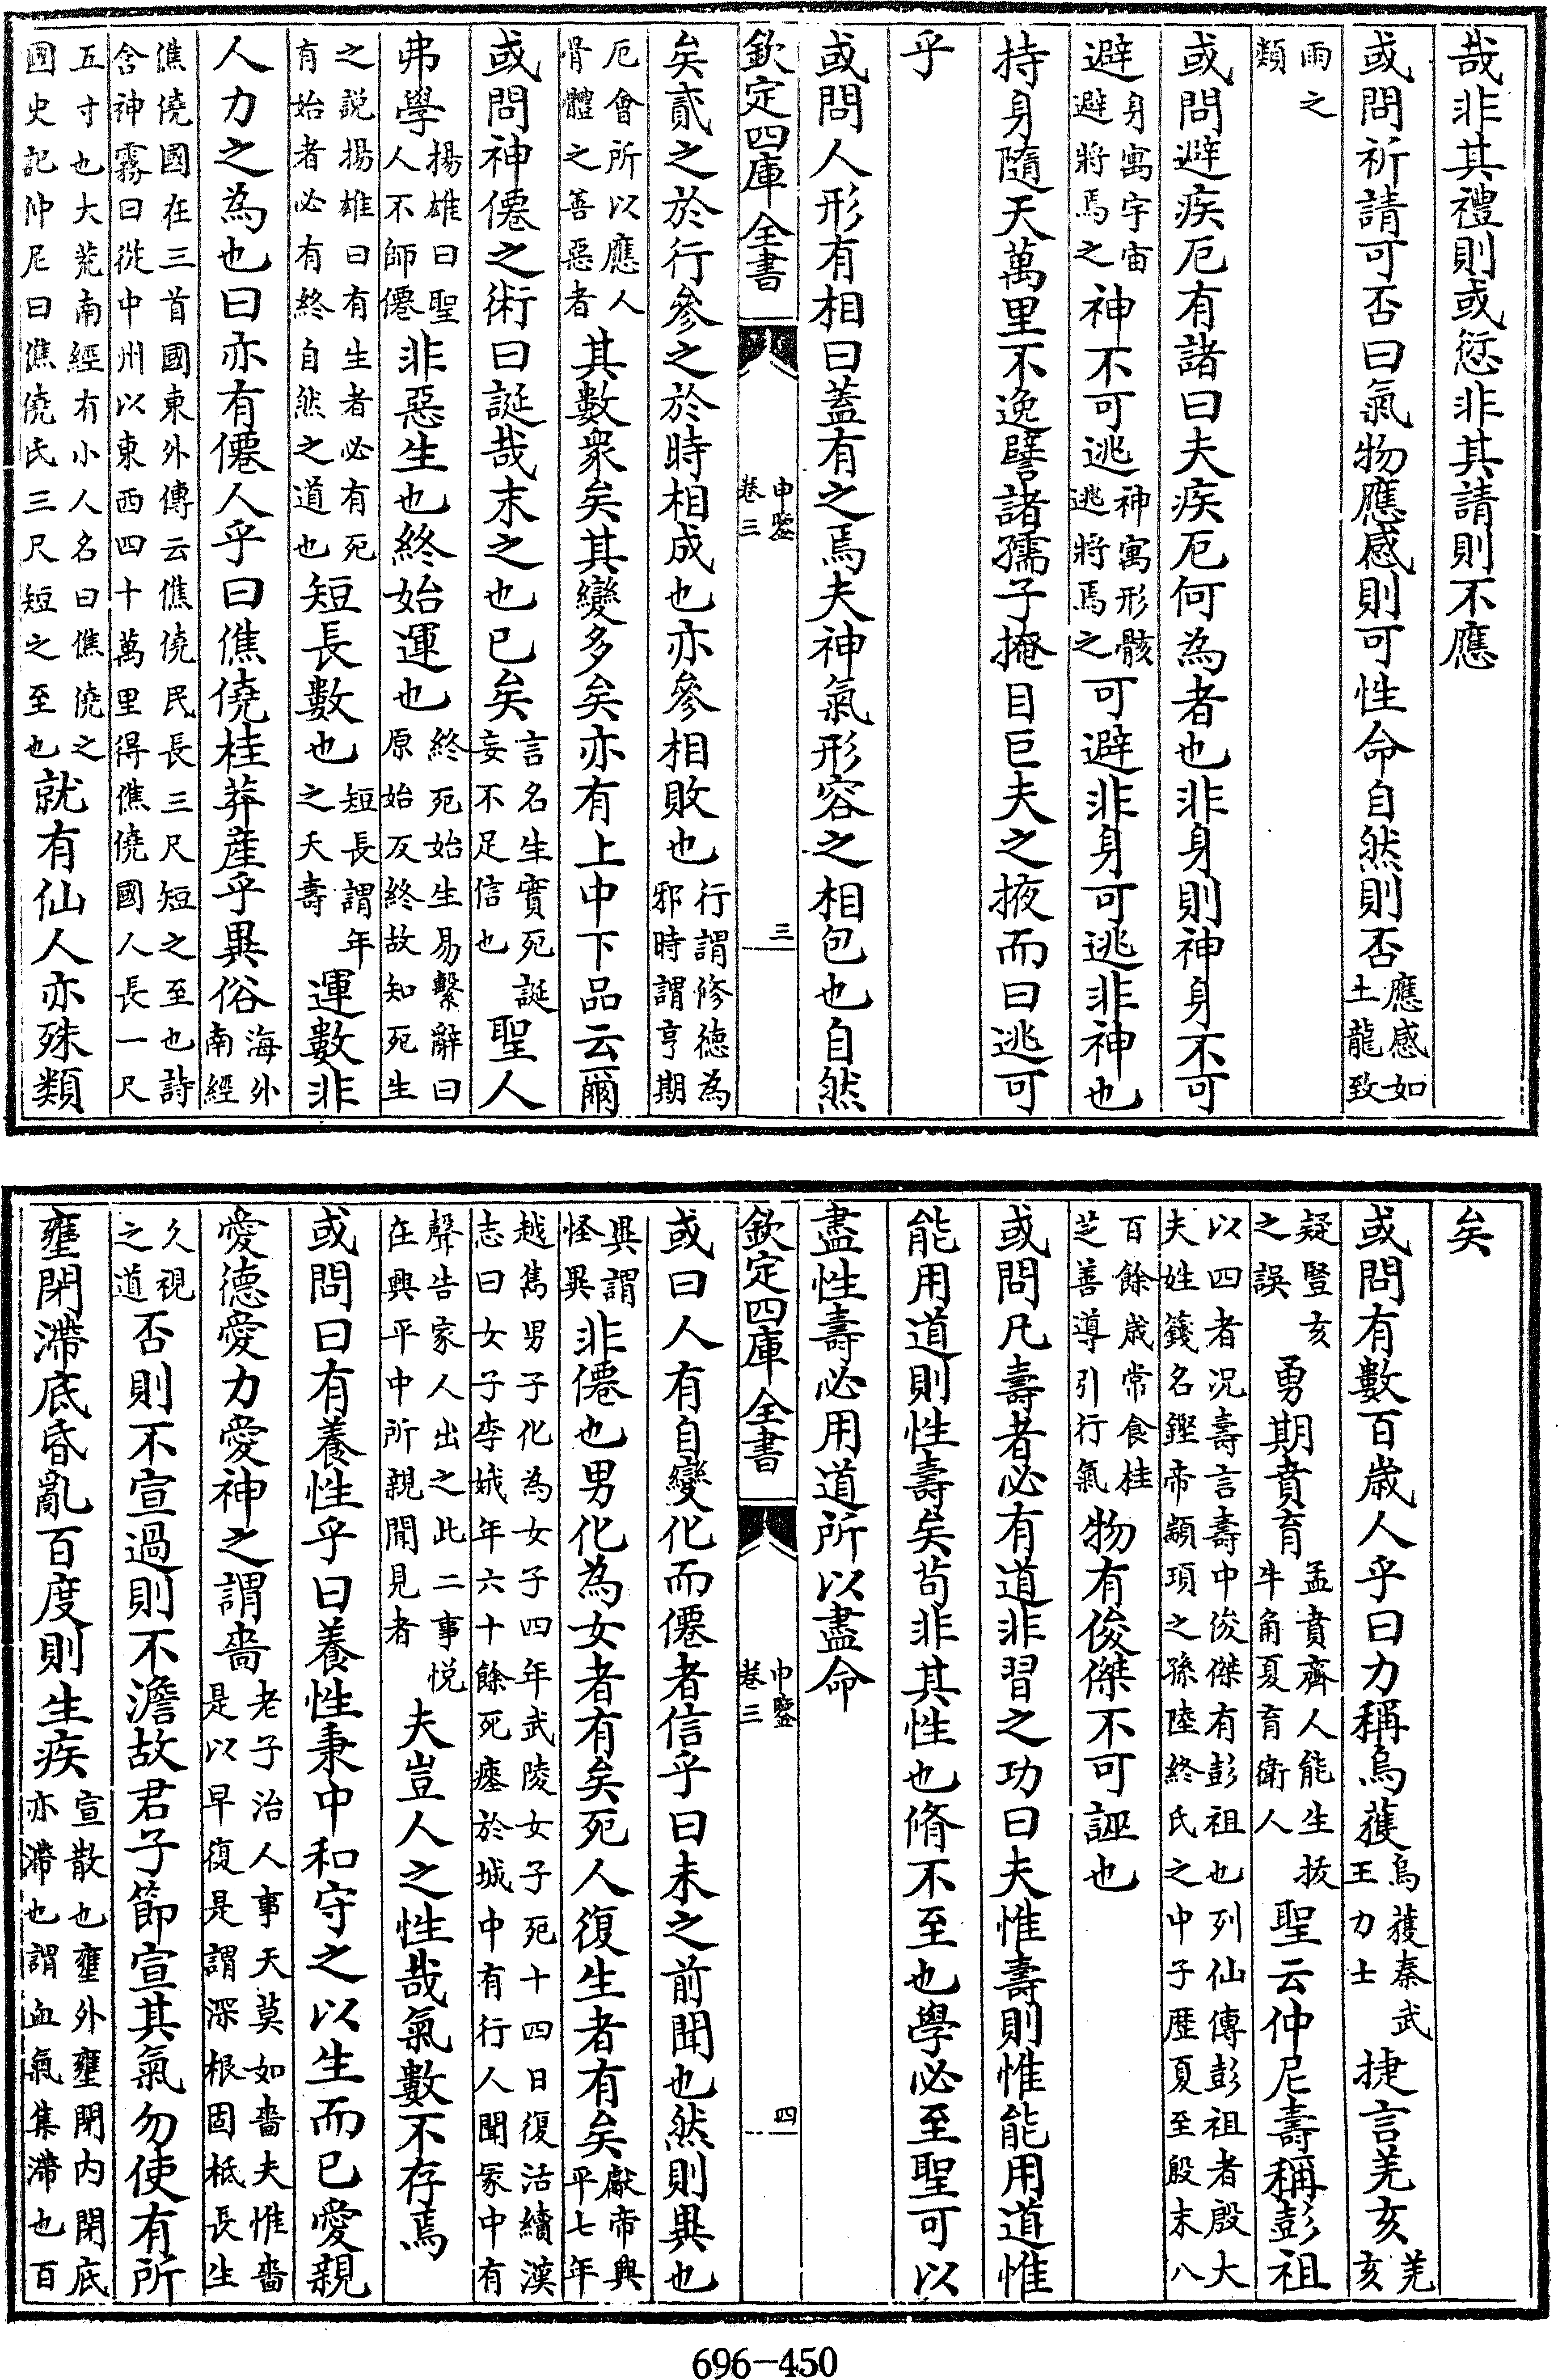 哉非其禮則或愆非其請則不應
或問祈請可否曰氣物應感則可性命自然則否應感如土龍致
雨之類
或問避疾厄有諸曰夫疾厄何為者也非身則神身不可
避身寓宇宙避將焉之神不可逃神寓形骸逃將焉之可避非身可逃非神也
持身隨天萬里不逸譬諸孺子掩目巨夫之掖而曰逃可
乎
或問人形有相曰蓋有之焉夫神氣形容之相包也自然
欽定四庫全書 申鑒卷三 三
矣貳之於行參之於時相成也亦參相敗也行謂修德為邪時謂亨期
厄會所以應人骨體之善惡者其數衆矣其變多矣亦有上中下品云爾
或問神僊之術曰誕哉末之也已矣言名生實死誕妄不足信也聖人
弗學揚雄曰聖人不師僊非惡生也終始運也終死始生易繫辭曰原始反終故知死生
之説揚雄曰有生者必有死有始者必有終自然之道也短長數也短長謂年之夭壽運數非
人力之為也曰亦有僊人乎曰僬僥桂莽産乎異俗海外南經
僬僥國在三首國東外傳云僬僥民長三尺短之至也詩含神霧曰從中州以東西四十萬里得僬僥國人長一尺
五寸也大荒南經有小人名曰僬僥之國史記仲尼曰僬僥氏三尺短之至也就有仙人亦殊類
矣
或問有數百歲人乎曰力稱烏獲烏獲秦武王力士捷言羌亥羌亥
疑豎亥之誤勇期賁育孟賁齊人能生拔牛角夏育衛人聖云仲尼壽稱彭祖
以四者况壽言壽中俊傑有彭祖也列仙傳彭祖者殷大夫姓籛名鏗帝顓頊之孫陸終氏之中子歴夏至殷末八
百餘歲常食桂芝善導引行氣物有俊傑不可誣也
或問凡壽者必有道非習之功曰夫惟壽則惟能用道惟
能用道則性壽矣苟非其性也脩不至也學必至聖可以
盡性壽必用道所以盡命
欽定四庫全書 申鑒卷三 四
或曰人有自變化而僊者信乎曰未之前聞也然則異也
異謂怪異非僊也男化為女者有矣死人復生者有矣獻帝興平七年
越雋男子化為女子四年武陵女子死十四日復活續漢志曰女子李娥年六十餘死瘞於城中有行人聞冢中有
聲告家人出之此二事悦在興平中所親聞見者夫豈人之性哉氣數不存焉
或問曰有養性乎曰養性秉中和守之以生而已愛親
愛德愛力愛神之謂嗇老子治人事天莫如嗇夫惟嗇是以早復是謂深根固柢長生
久視之道否則不宣過則不澹故君子節宣其氣勿使有所
壅閉滯底昏亂百度則生疾宣散也壅外壅閉内閉底亦滯也謂血氣集滯也百
696-450